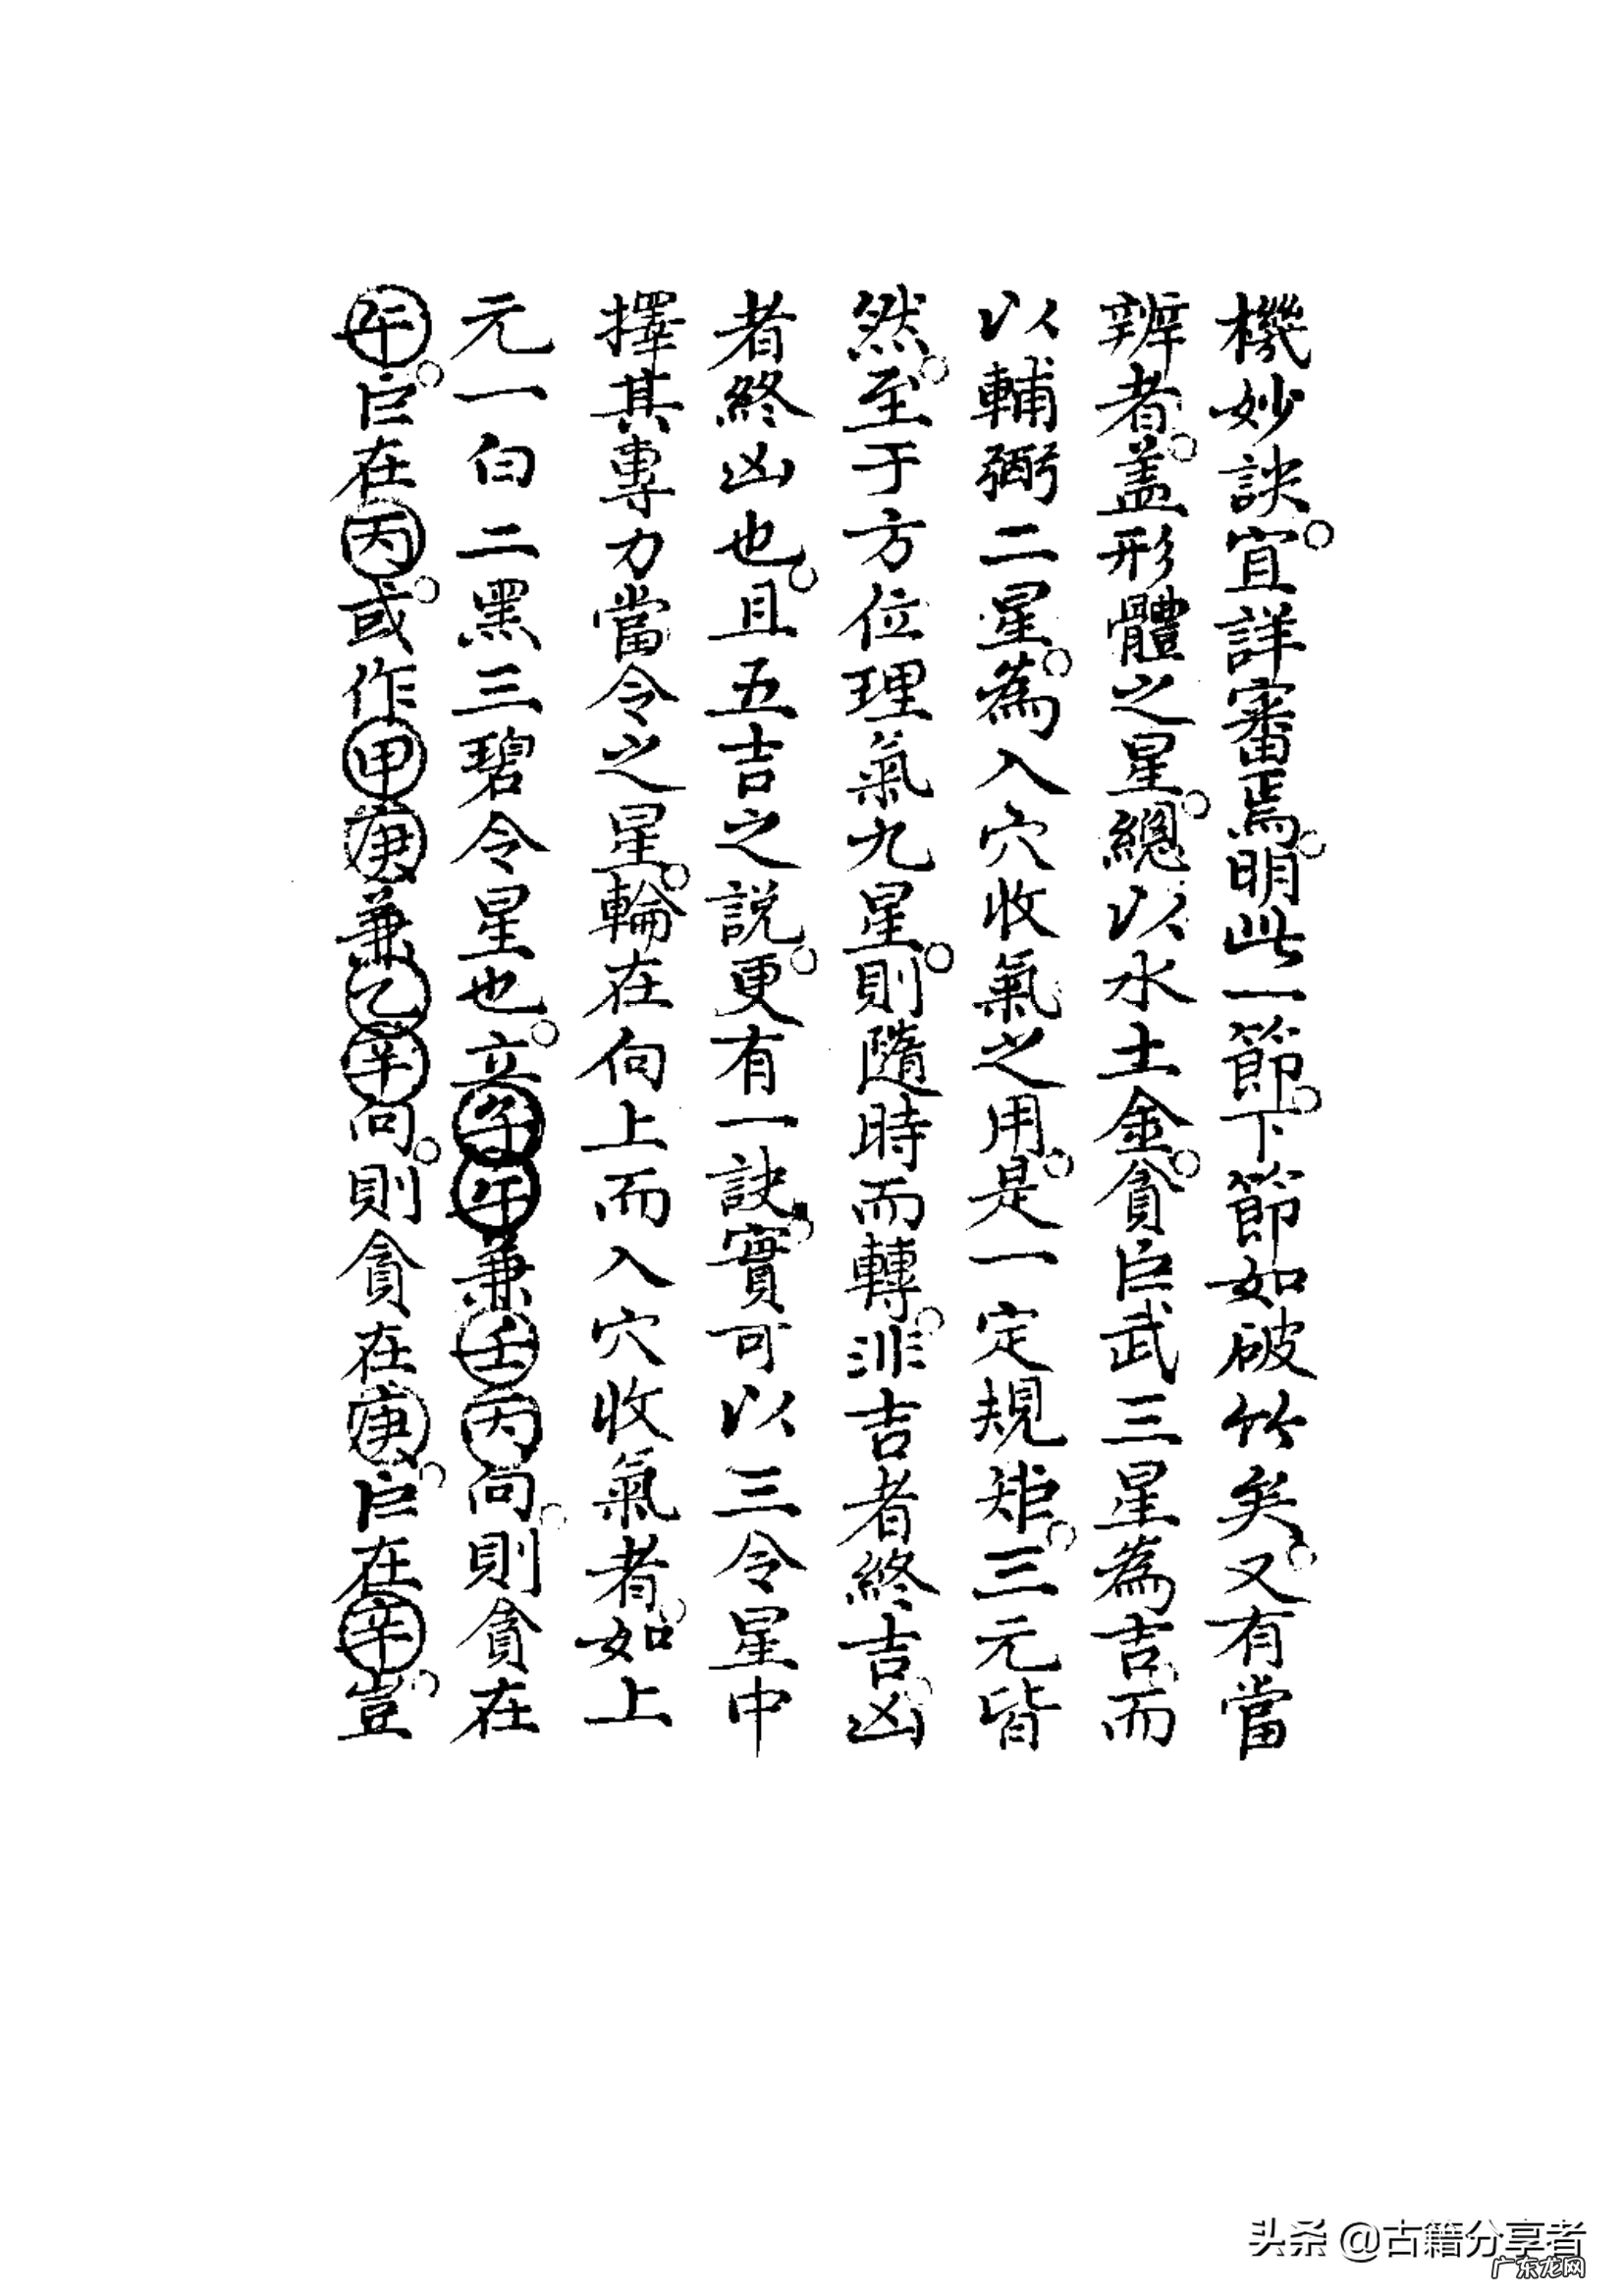 機妙訣宜詳審焉明此一節下節如破竹矣又有當
辨者盖形體之星總以水土金貪巨武三星為吉而
以輔弼二星為入穴收氣之用是一定規矩三元皆
然至于方位理氣九星則隨時而轉非吉者終吉凶
者終凶也且五吉之説更有一訣實可以三令星中
擇其專力當令之星輪在向上而入穴收氣者如上
元一白二黑三碧令星也立子午兼壬丙向則貪在
午巨在丙或作甲庚兼乙辛向則貪在庚巨在辛豈
头条 @古籍分享者
广东龙网